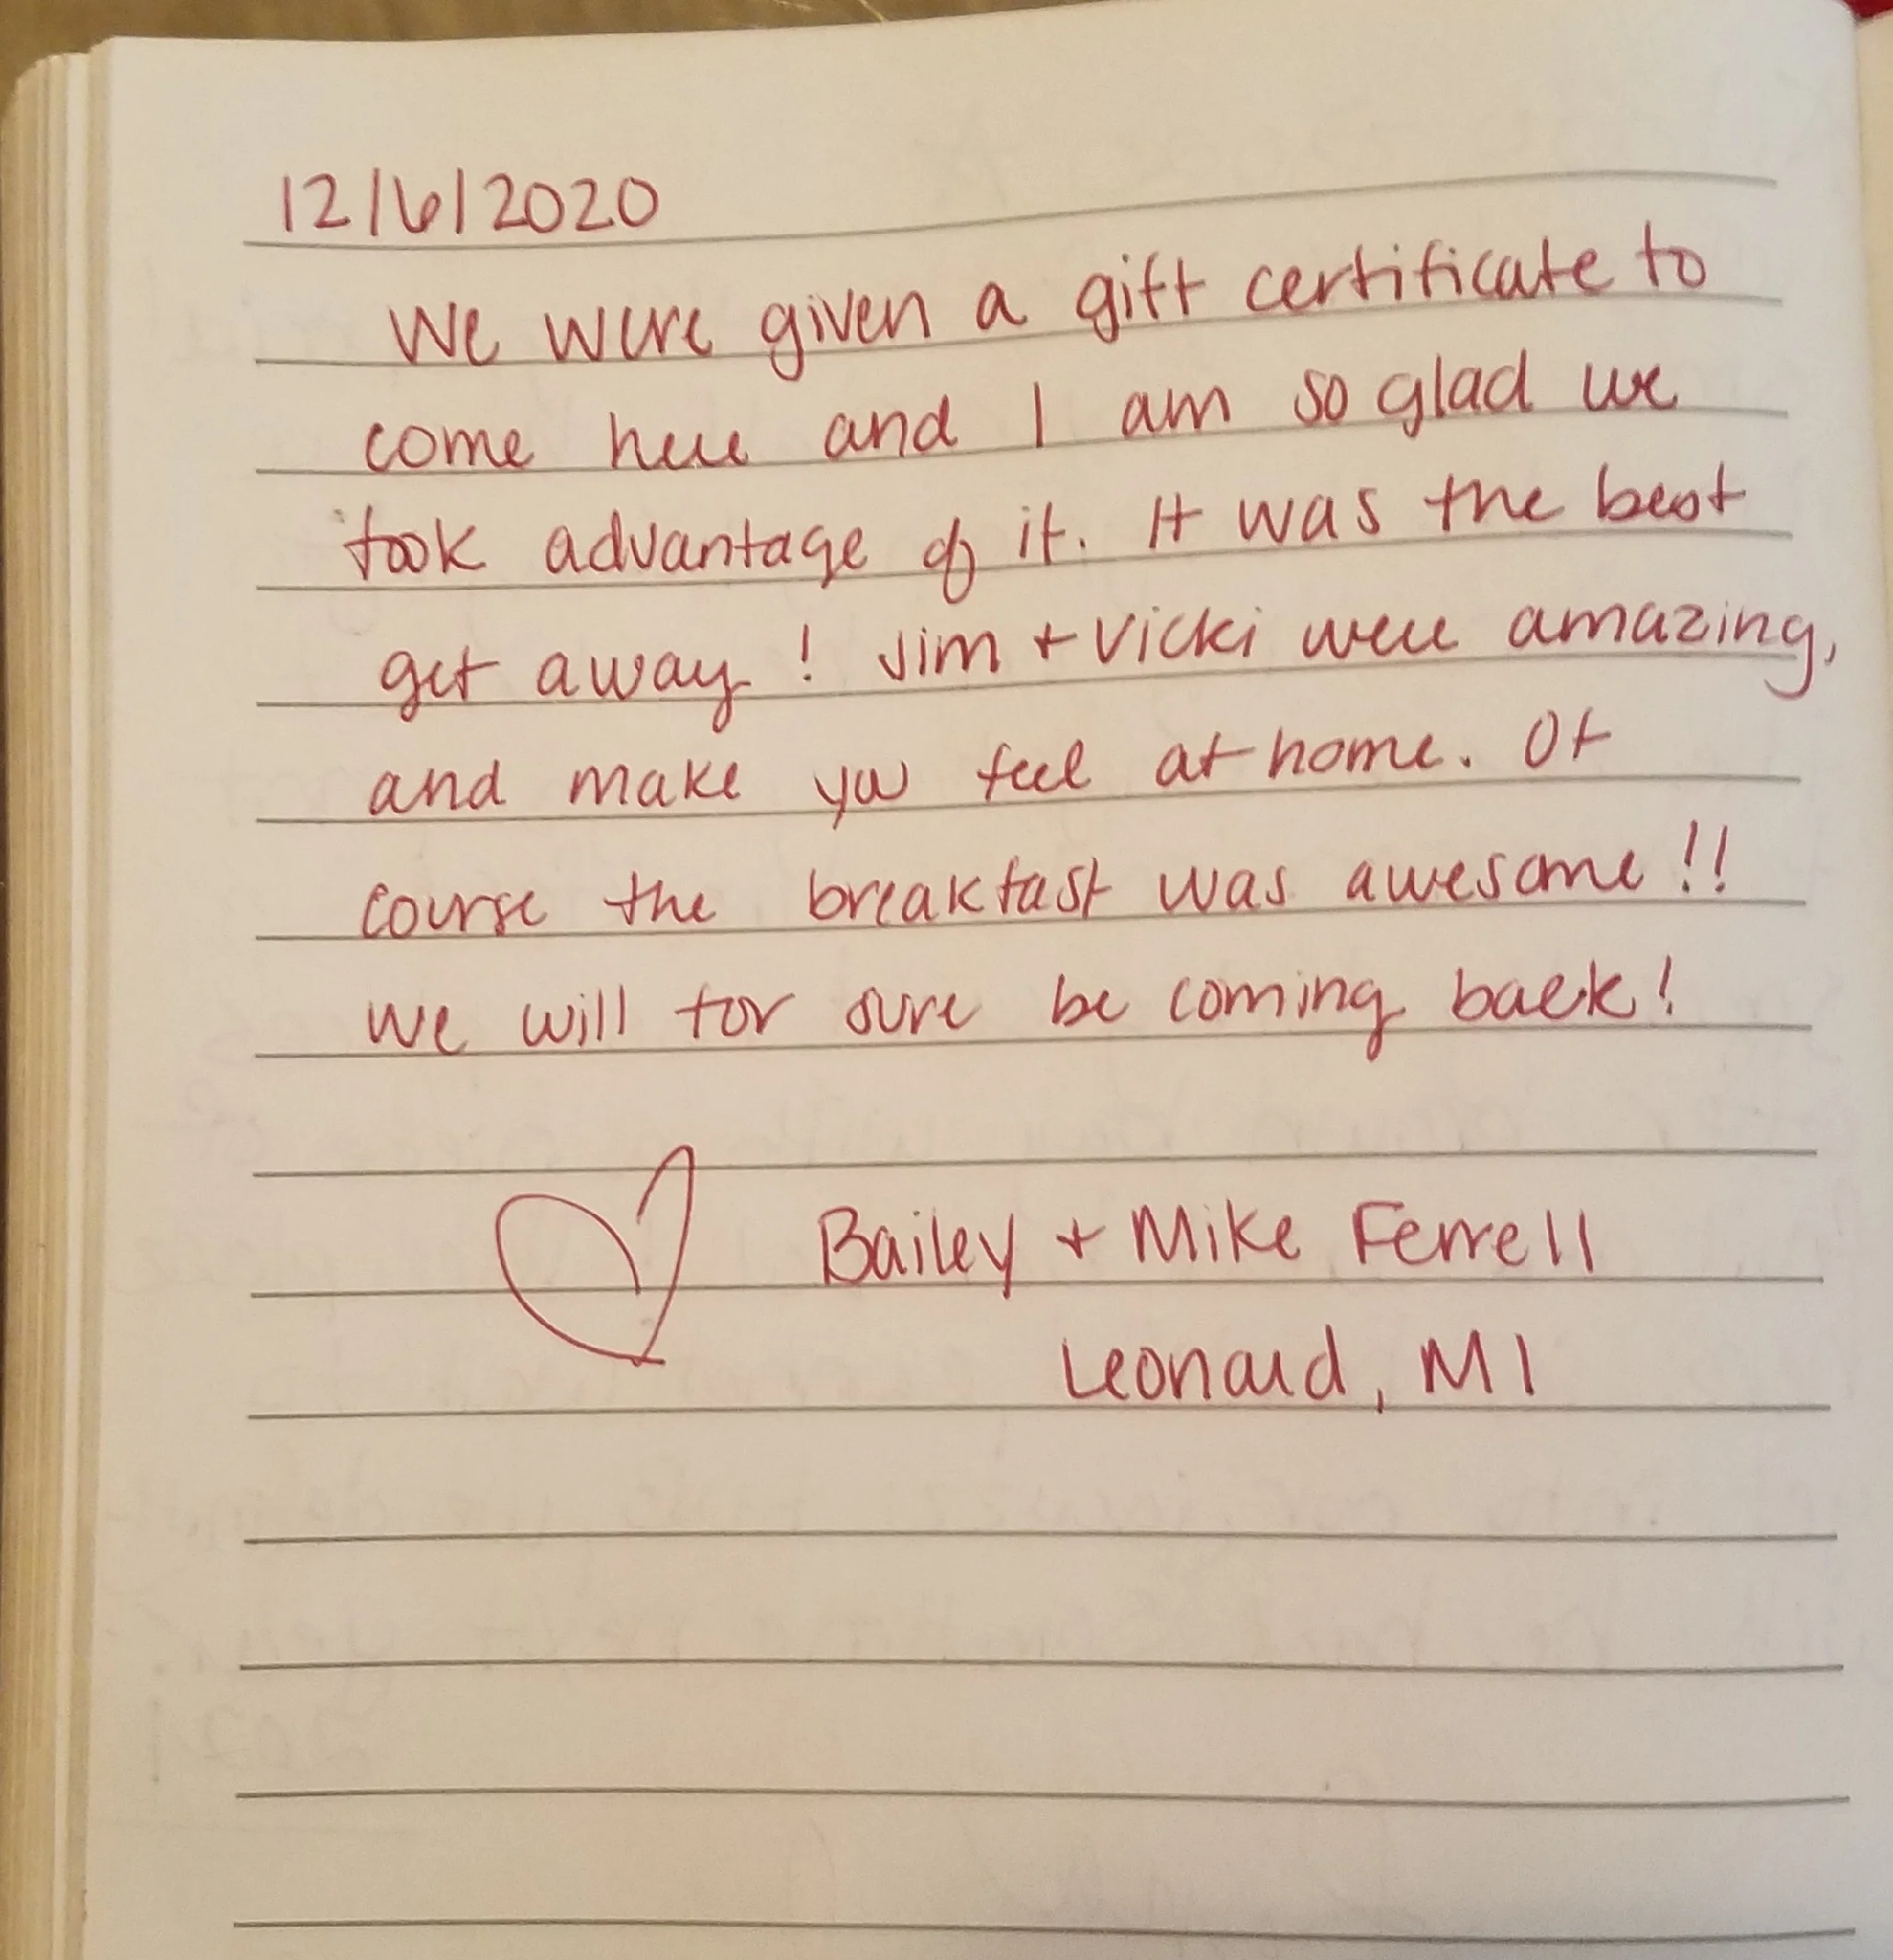 12/6/2020
We were given a gift certificate to
come here and I am so glad we
took advantage of it. It was the best
get away! Jim + Vicki were amazing,
and make you feel at home. Of
course the breakfast was awesome!!
We will for sure be coming back!
Bailey + Mike Ferrell
Leonard, MI